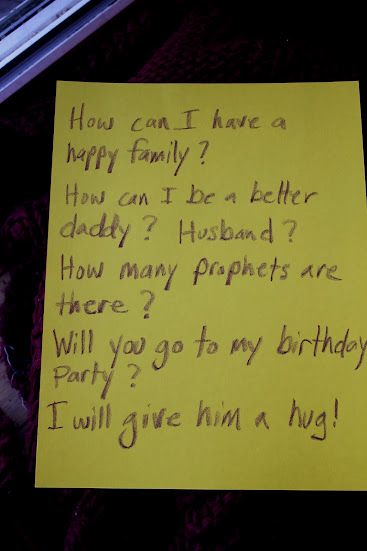 How can I have a
happy family?
How can I be a better
daddy? Husband?
How many prophets are
there?
Will you go to my birthday
Party?
I will give him a hug!